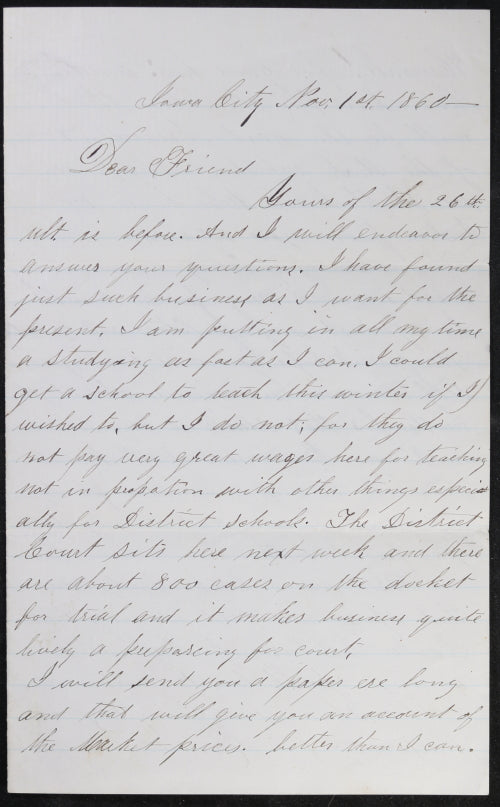 Iowa City Nov. 1st. 1860—
Dear Friend
Yours of the 26th.
ult. is before. And I will endeavor to
answer your questions. I have found
just such business as I want for the
present. I am putting in all my time
a studying as fast as I can. I could
get a school to teach this winter if I
wished to, but I do not; for they do
not pay very great wages here for teaching
not in propotion with other things especi
ally for District schools. The District
Court sits here next week and there
are about 800 cases on the docket
for trial and it makes business quite
lively a preparcing for court.
I will send you a paper ere long
and that will give you an account of
the Market prices. better than I can.